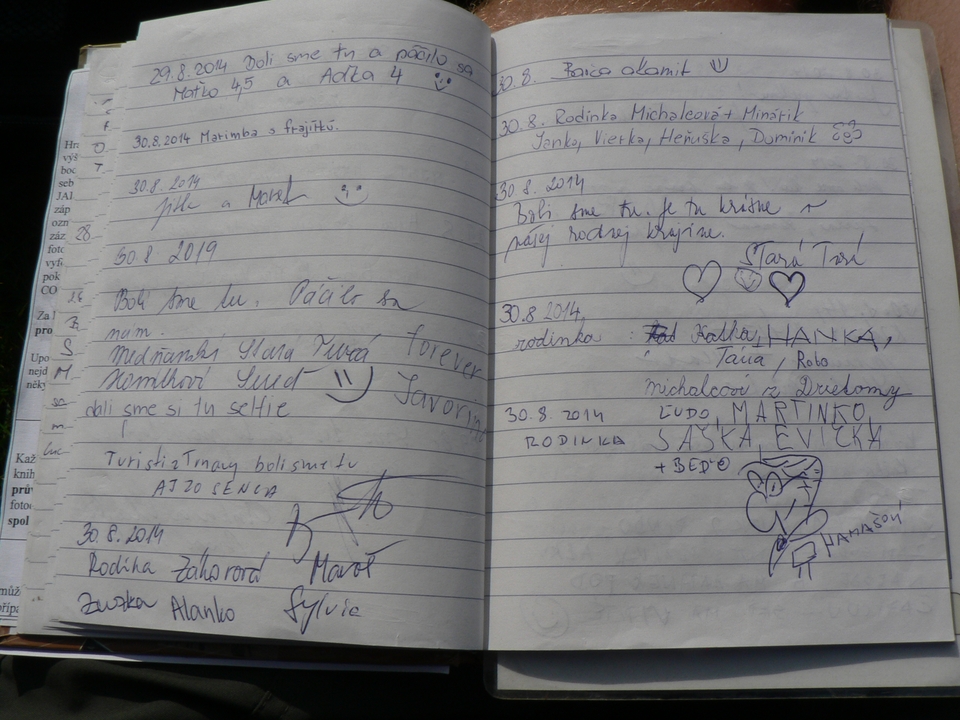 29.8.2014 Boli sme tu a páčilo sa
Maťko 4,5 a Aďka 4
30.8.2014 Marimba s frajírků.
30.8.2014
a Marek
30.8.2019
Boli sme tu. Páčilo sa
nám.
Stará Turá forever
Javorin
dali sme si tu selfie
Turisti z Trnavy boli sme tu
AJ ZO SENCA
30.8.2014
Rodina Záhorová Maroš
Zuzka Alanko Sylvia
30.8.
30.8. Rodinka Michalcová + Minárik
Janka, Vierka, Heňuška, Dominik
30.8.2014
Boli sme tu. Je tu krásne v
našej rodnej krajine.
Stará Turá
30.8.2014,
rodinka : Katka, HANKA,
Táňa, Robo
Michalcoví z Drietomy
30.8.2014 ĽUDO, MARTINKO,
RODINKA SAŠKA, EVIČKA
+ BEĎO
HAMAŠOVÍ
28
Hra
výš
boc
seb
JAI
záp
ozn
záz
foto
vyfo
pok
CO
Za
pro
Upo
nejd
něky
Kaž
knih
prův
fotoc
spol
může
přípa